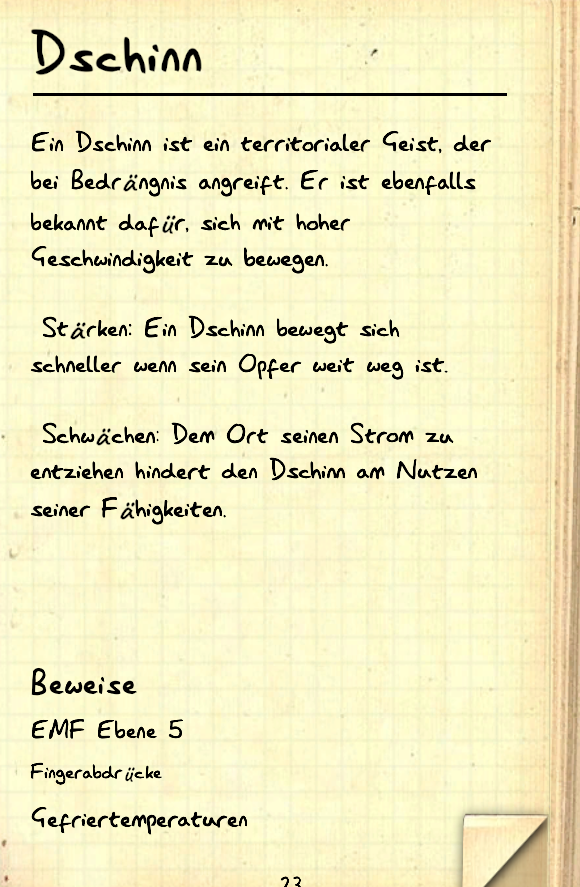 Dschinn
Ein Dschinn ist ein territorialer Geist, der
bei Bedrängnis angreift. Er ist ebenfalls
bekannt dafür, sich mit hoher
Geschwindigkeit zu bewegen.
Stärken: Ein Dschinn bewegt sich
schneller wenn sein Opfer weit weg ist.
Schwächen: Dem Ort seinen Strom zu
entziehen hindert den Dschinn am Nutzen
seiner Fähigkeiten.
Beweise
EMF Ebene 5
Fingerabdrücke
Gefriertemperaturen
23